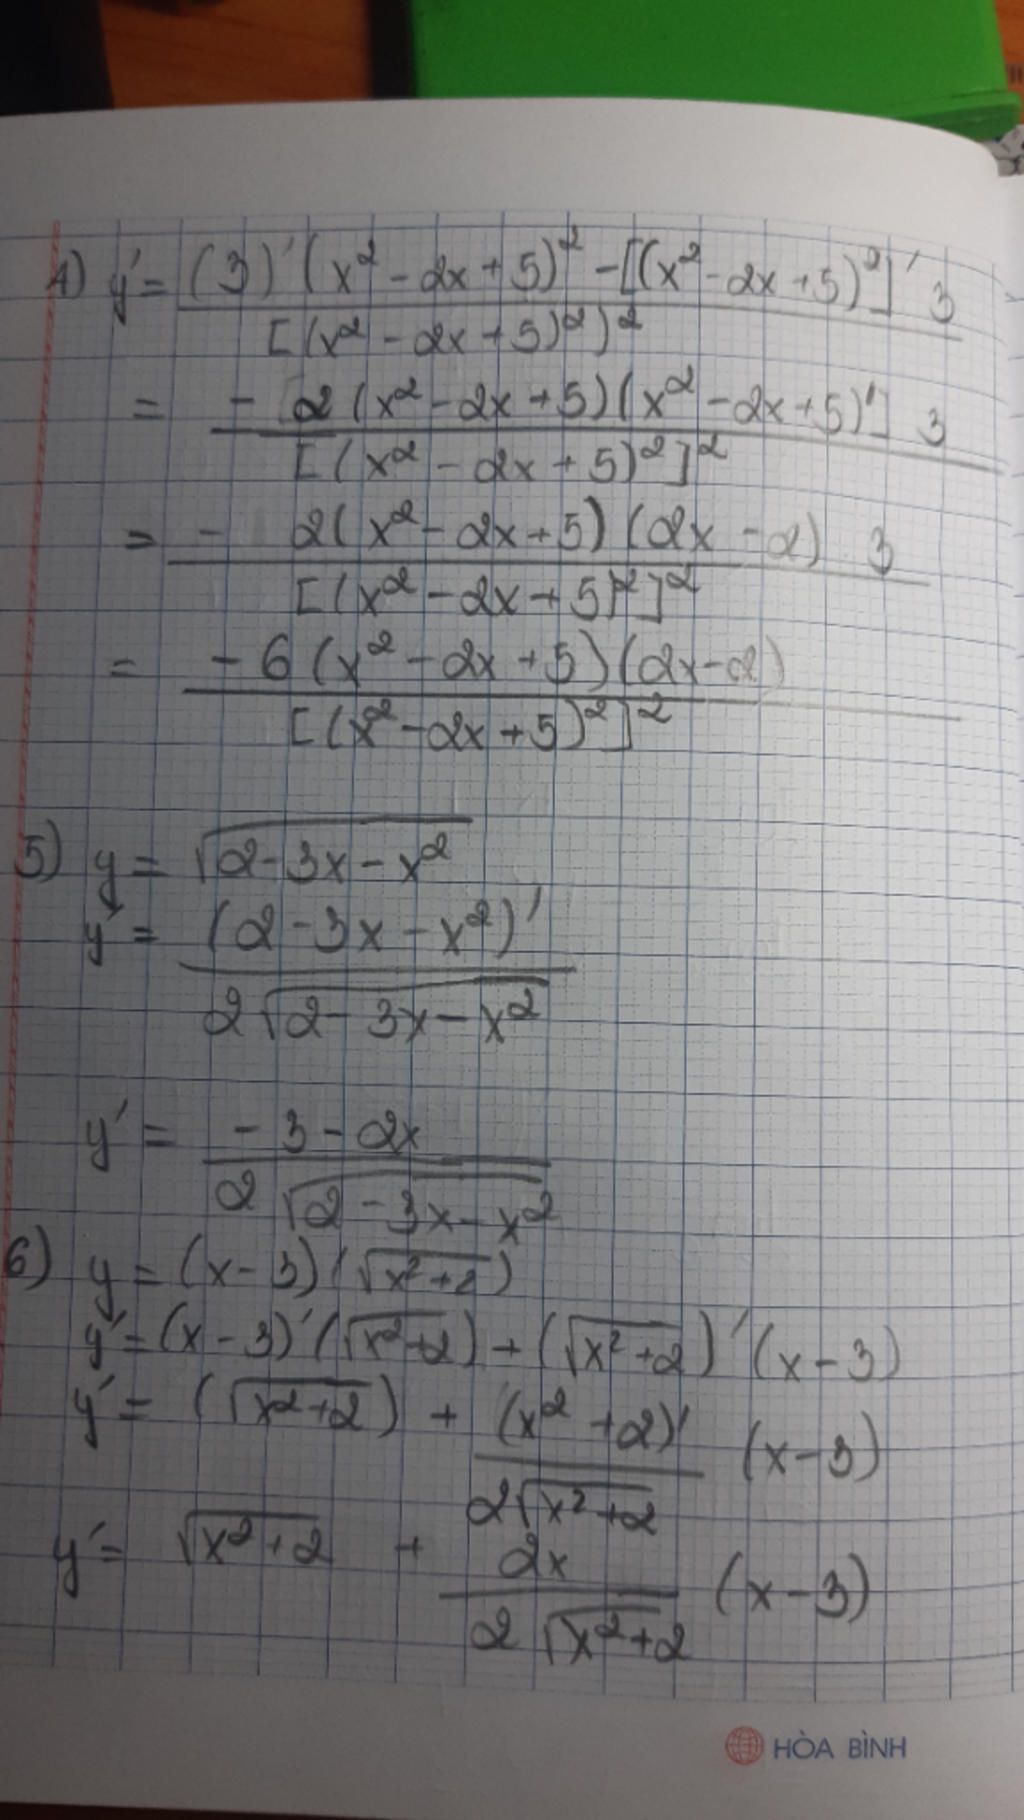 4) y' = (3)'(x² - 2x + 5)² - [(x² - 2x + 5)²]' 3
[(x² - 2x + 5)²)²
= - 2(x² - 2x + 5)(x² - 2x + 5)'] 3
[(x² - 2x + 5)²]²
= - 2(x² - 2x + 5)(2x - 2) 3
[(x² - 2x + 5)²]²
= -6(x² - 2x + 5)(2x - 2)
[(x² - 2x + 5)²]²
5) y = √2 - 3x - x²
y' = (2 - 3x - x²)'
2√2 - 3x - x²
y' = -3 - 2x
2√2 - 3x - x²
6) y = (x - 3)(√x² + 2)
y' = (x - 3)'(√x² + 2) + (√x² + 2)'(x - 3)
y' = (√x² + 2) + (x² + 2)' (x - 3)
2√x² + 2
y' = √x² + 2 + 2x (x - 3)
2√x² + 2
HÒA BÌNH